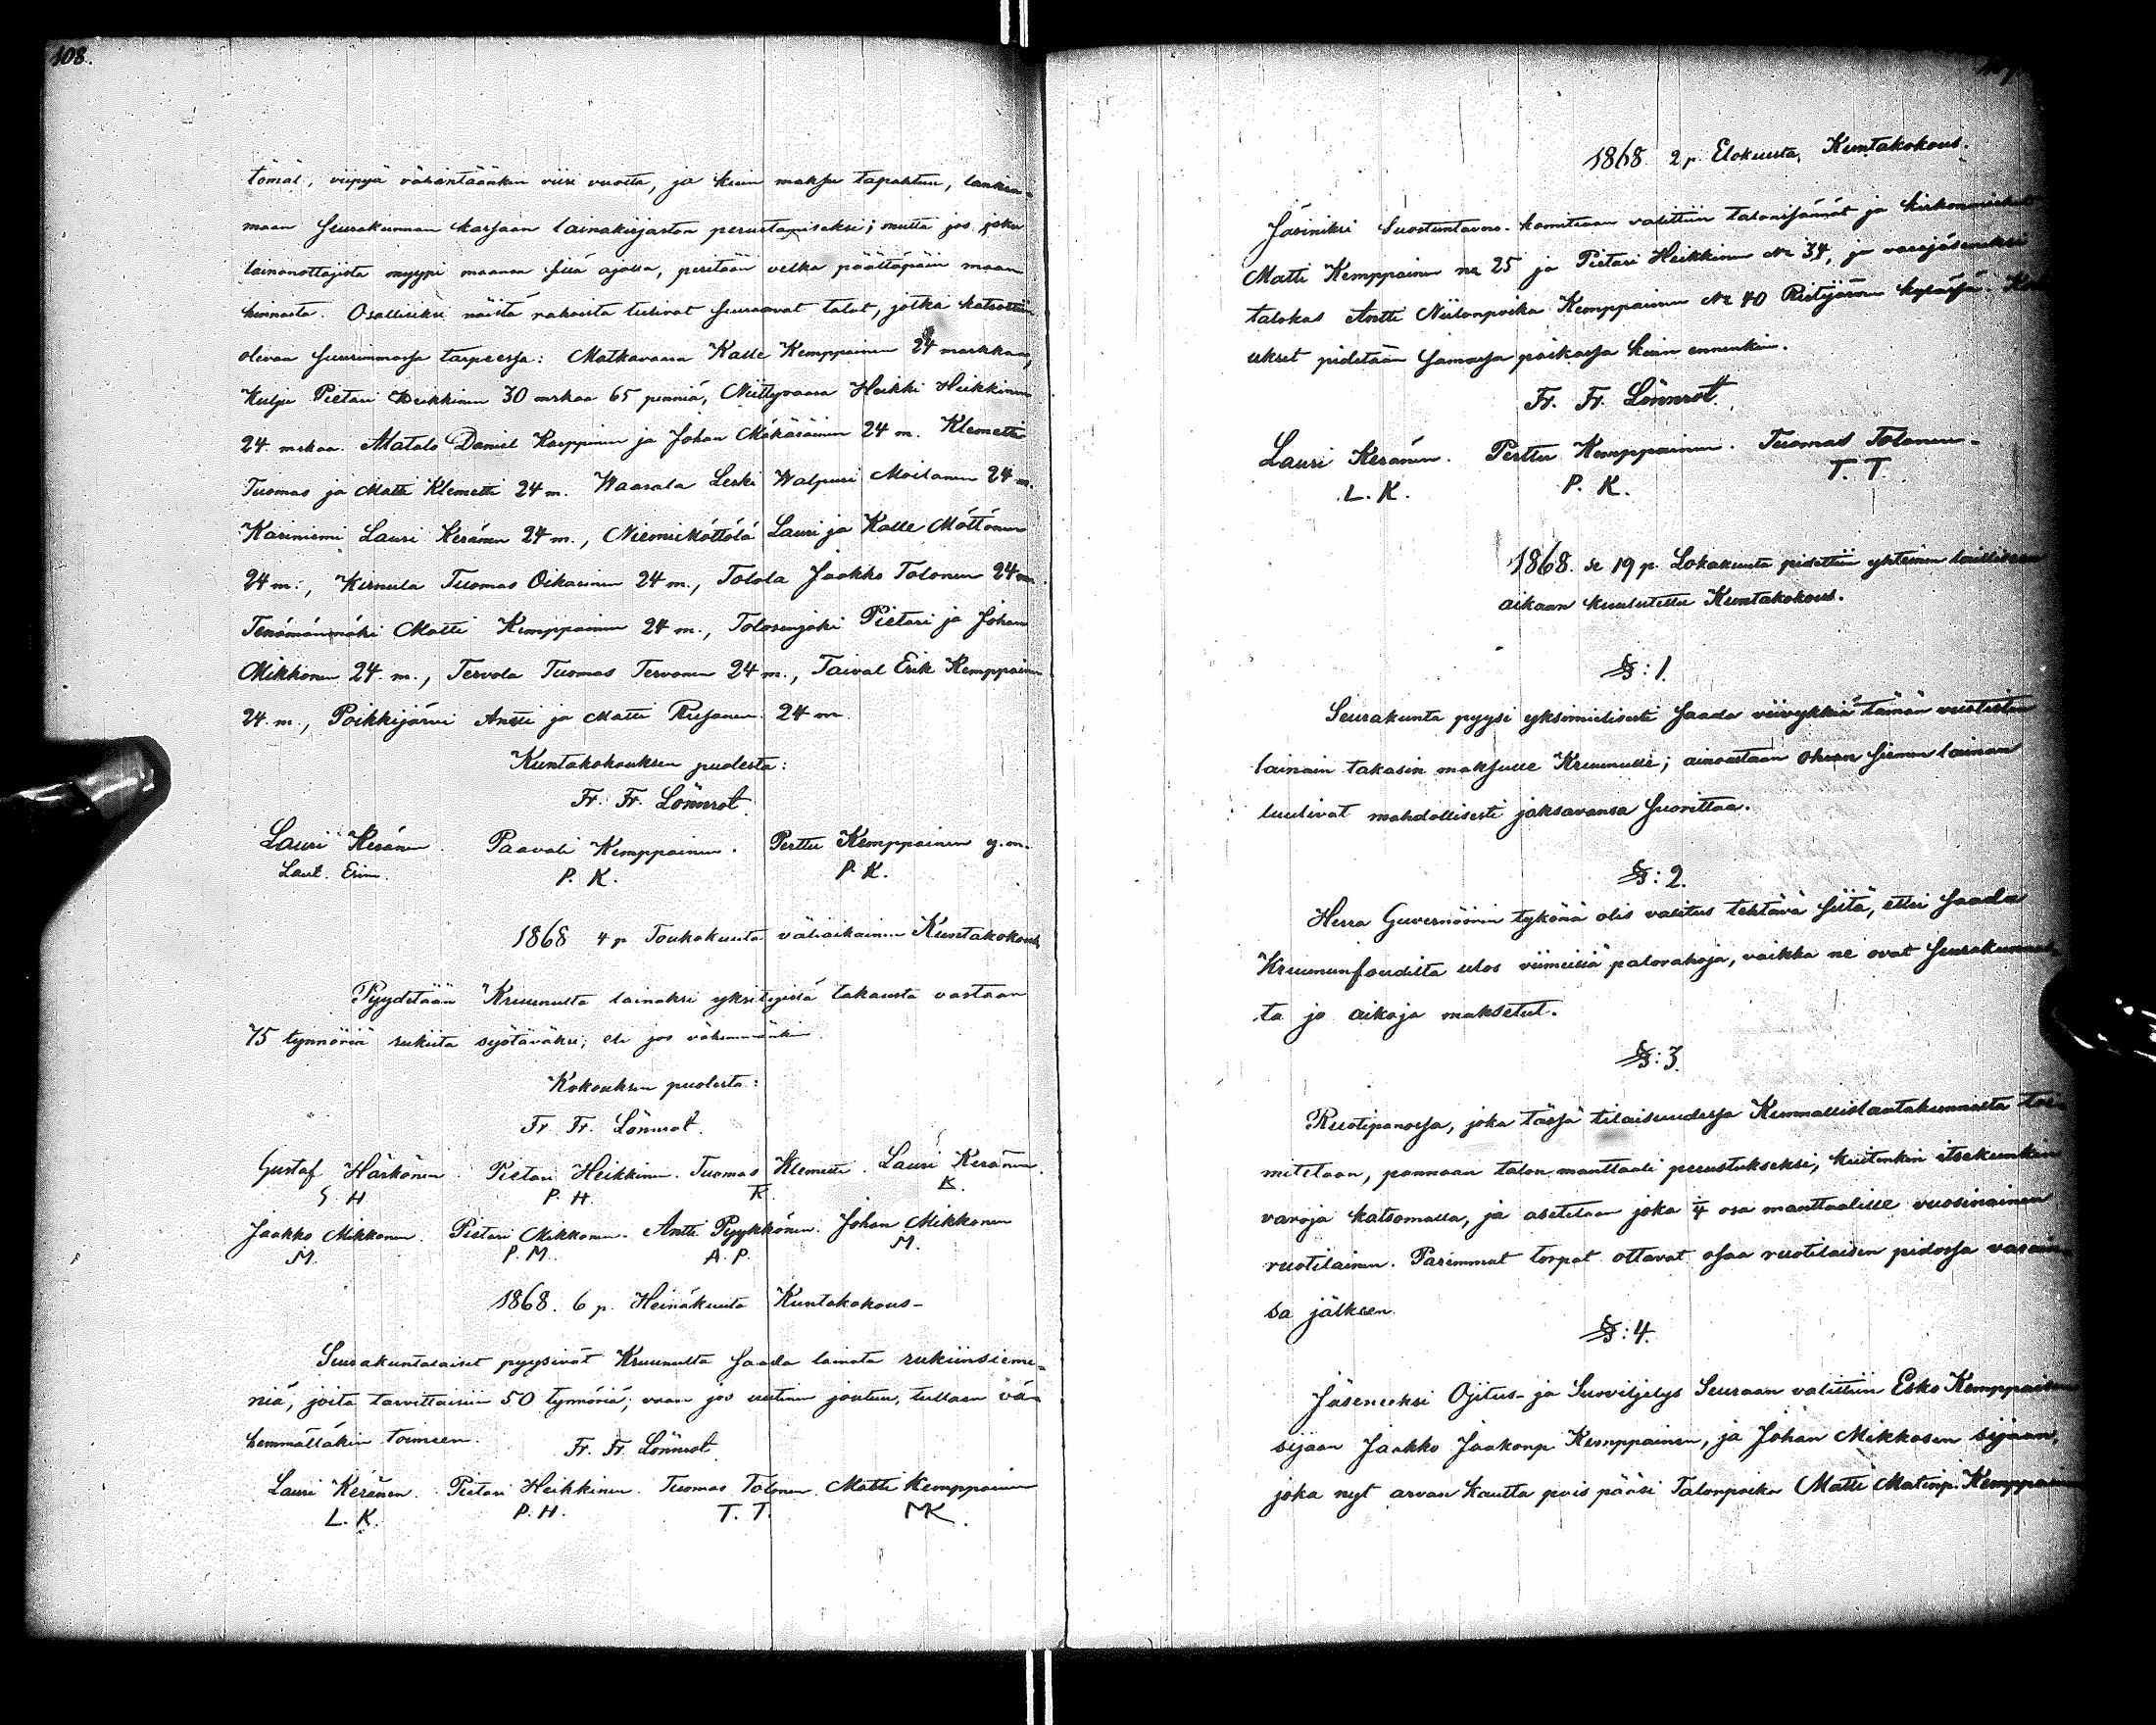 108.
tömät, viipyä vähintäänkin viisi vuotta, ja kuin maksu tapahtuu, lankea-
maan Seurakunnan kassaan lainakirjaston perustamiseksi; mutta jos joku
lainanottajista myypi maansa sillä ajalla, peritään velka päältäpäin maan
hinnasta. Osallisiksi näistä rahoista tulivat seuraavat talot, jotka katsottiin
olevan suurimmassa tarpeessa: Matkavaara Kalle Kemppainen 24 markkaa,
Kulju Pietari Heikkinen 30 mrkaa 65 penniä, Niittyvaara Heikki Heikkinen
24 mrkaa. Matalo Daniel Karppinen ja Johan Mäkäräinen 24 m. Klemetti
Tuomas ja Matti Klemetti 24 m. Waarala Leski Walpuri Moilanen 24 m.
Kariniemi Lauri Keränen 24 m., NiemiMöttölä Lauri ja Kalle Möttönen
24 m., Kirnula Tuomas Oikarinen 24 m., Tolola Jaakko Tolonen 24 m.
Tenämänmäki Matti Kemppainen 24 m., Tolosenjoki Pietari ja Johan
Mikkonen 24. m., Tervola Tuomas Tervonen 24 m., Taival Erik Kemppainen
24. m., Poikkijärvi Antti ja Matti 24 m.
Kuntakokouksen puolesta:
Fr. Fr. Lönnrot.
Lauri Keränen. Paavali Kemppainen. Perttu Kemppainen y.m.
Laut. Esim. P. K. P. K.
1868 4 p Toukokuuta väliaikainen Kuntakokous
Pyydetään Kruunulta lainaksi yksityistä takausta vastaan
75 tynnöriä rukiita syötäväksi, eli jos vähemmänkin.
Kokouksen puolesta:
Fr. Fr. Lönnrot.
Gustaf Härkönen. Pietari Heikkinen. Tuomas Klemetti. Lauri Keränen.
G H P. H. K. K.
Jaakko Mikkonen. Pietari Mikkonen. Antti Pyykkönen. Johan Mikkonen
M. P. M. A. P. M.
1868. 6 p. Heinäkuuta Kuntakokous-
Seurakuntalaiset pyysivät Kruunulta saada lainata rukiinsieme-
niä, joita tarvittaisiin 50 tynnöriä; vaan jos uutinen joutuu, tullaan vä-
hemmälläkin toimeen.
Fr. Fr. Lönnrot.
Lauri Keränen. Pietari Heikkinen. Tuomas Tolonen. Matti Kemppainen
L. K. P. H. T. T. MK.
1868 2 p. Elokuuta, Kuntakokous.
Jäseniksi Suostuntavero-komiteaan valittiin talonisännät ja kirkonmiehet
Matti Kemppainen no 25 ja Pietari Heikkinen No 34, ja varajäseneksi
talokas Antti Niilonpoika Kemppainen No 40 Ristijärven kylässä. Kok
ukset pidetään samassa paikassa kuin ennenkin.
Fr. Fr. Lönnrot.
Lauri Keränen. Perttu Kemppainen. Tuomas Tolonen.
L. K. P. K. T. T.
1868. se 19 p. Lokakuuta pidettiin yhteinen lailliseen
aikaan kuulutettu Kuntakokous.
§: 1.
Seurakunta pyysi yksimielisesti saada viivykkiä tämän vuotisten
lainain takasin maksulle Kruunulle; ainoastaan ohran siemen lainan
luulivat mahdollisesti jaksavansa suorittaa.
§: 2.
Herra Guvernöörin tykönä olis valitus tehtävä siitä, ettei saada
Kruununfoudilta ulos viimeisiä palorahoja, vaikka ne ovat Seurakunnas-
ta jo aikoja maksetut.
§: 3.
Ruotipanossa, joka tässä tilaisuudessa Kunnallislautakunnalta toi-
mitetaan, pannaan talon manttaali perustukseksi, kuitenkin itsekunkin
varoja katsomalla, ja asetetaan joka 1/4 osa manttaalille vuosinainen
ruotilainen. Parimmat torpat ottavat osaa ruotilaisen pidossa varain-
sa jälkeen.
§: 4.
Jäseneksi Ojitus- ja Suoviljelys Seuraan valittiin Esko Kemppaisen
sijaan Jaakko Jaakonp Kemppainen, ja Johan Mikkosen sijaan,
joka nyt arvan kautta pois pääsi Talonpoika Matti Matinp. Kemppainen